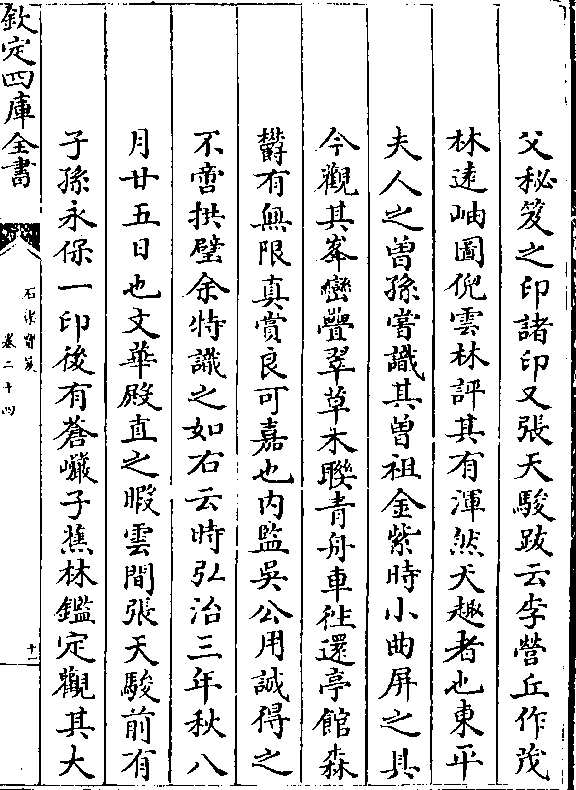 父秘笈之印諸印又張天駿跋云李營丘作茂
林逺岫圖倪雲林評其有渾然天趣者也東平
夫人之曽孫嘗識其曽祖金紫時小曲屏之具
今觀其峯巒疊翠草木聯青舟車徃還亭館森
欝有無限真賞良可嘉也内監吳公用誠得之
不啻拱璧余特識之如右云時弘治三年秋八
月廿五日也文華殿直之暇雲間張天駿前有
子孫永保一印後有蒼巗子蕉林鑑定觀其大
欽定四庫全書
石渠寳笈
卷二十四
十二